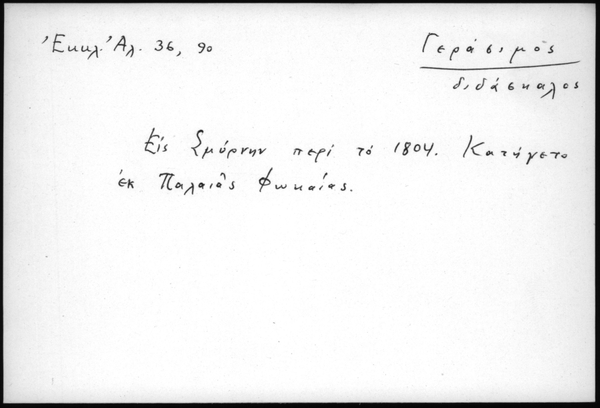 Ἐκκλ. Ἀλ. 36, 90
Γεράσιμος
διδάσκαλος
Εἰς Σμύρνην περὶ τὸ 1804. Κατήγετο
ἐκ Παλαιᾶς Φωκαίας.